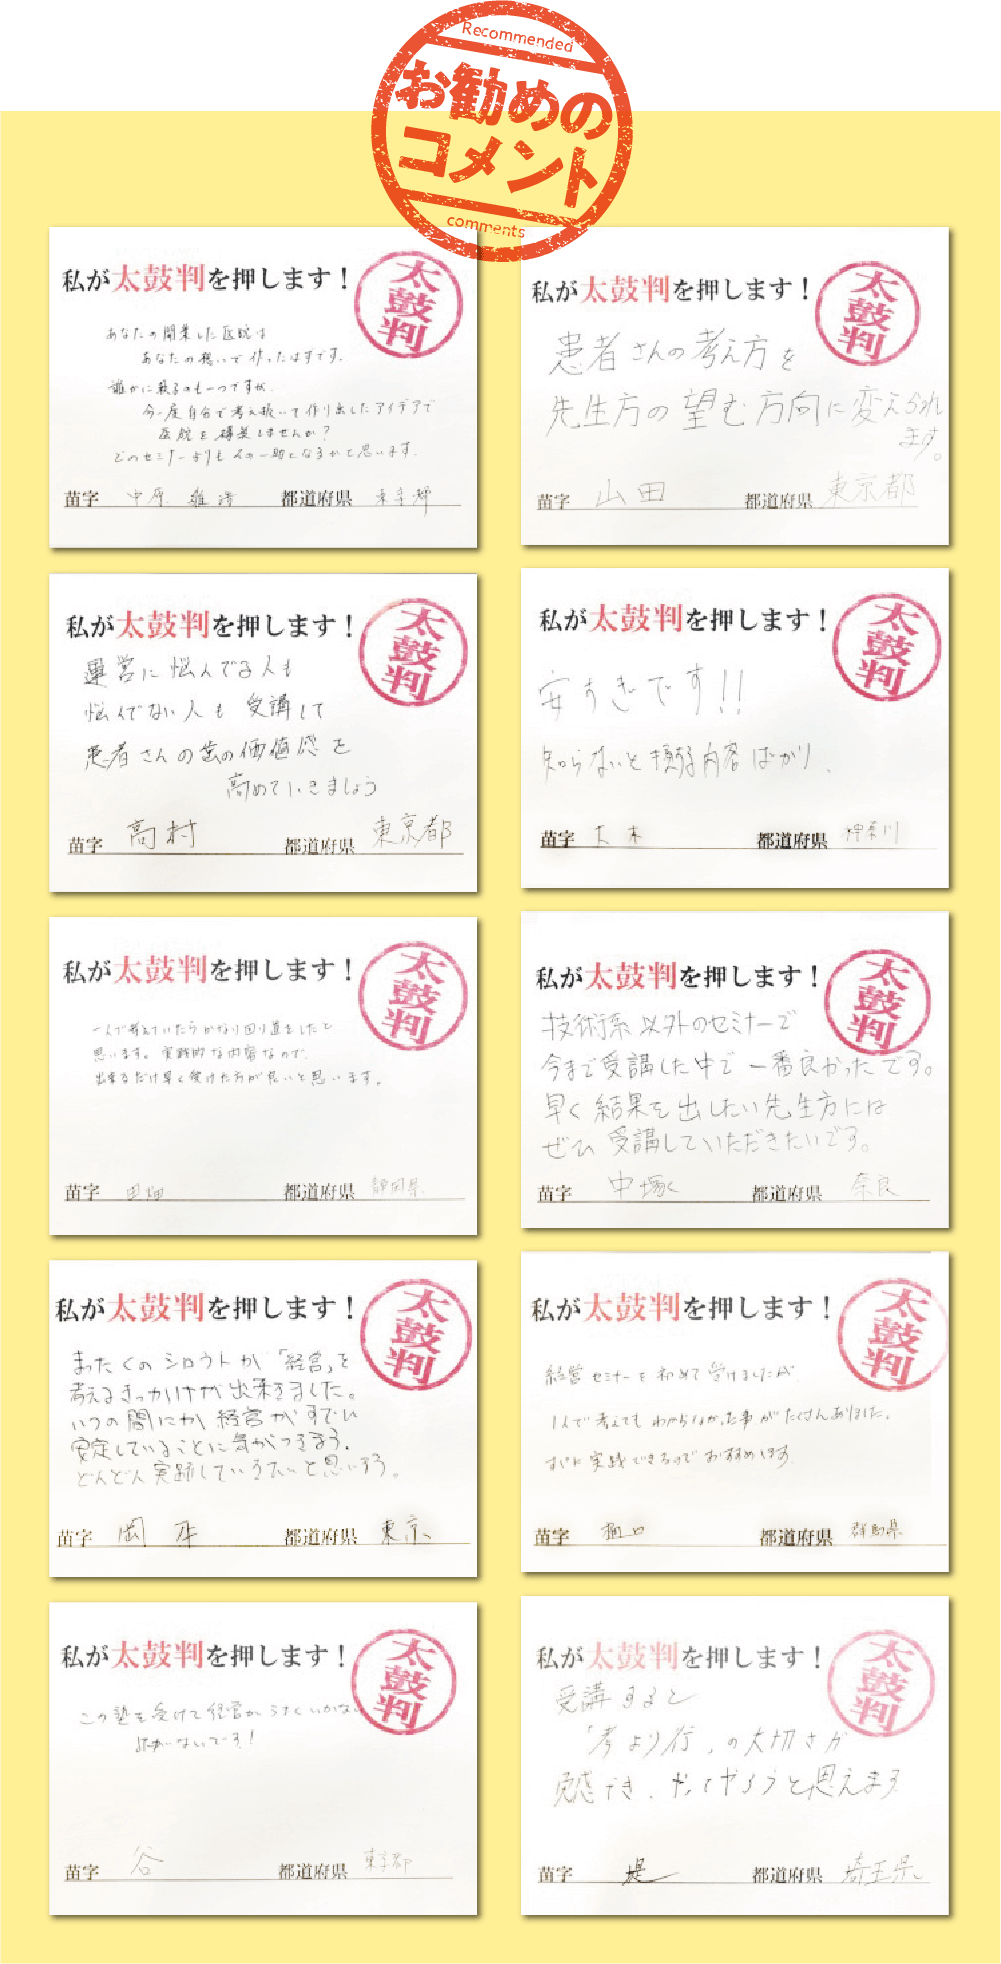 Recommended
お勧めの
コメント
comments
私が太鼓判を押します！
太鼓判
あなたの開業した医院は
あなたの想いで作ったはずです。
誰かに頼るのも一つですが、
今一度自分で考え抜いて作り出したアイデアで
医院を構築しませんか？
どのセミナーよりもその一助になるかと思います。
苗字 中原 都道府県
私が太鼓判を押します！
太鼓判
患者さんの考え方を
先生方の望む方向に変えられ
ます。
苗字 山田 都道府県 東京都
私が太鼓判を押します！
太鼓判
運営に悩んでる人も
悩んでない人も 受講して
患者さんの歯の価値感を
高めていきましょう
苗字 高村 都道府県 東京都
私が太鼓判を押します！
太鼓判
安すぎです!!
知らないと損する内容ばかり、
苗字 大木 都道府県 神奈川
私が太鼓判を押します！
太鼓判
一人で考えていたらかなり回り道をしたと
思います。実践的な内容なので、
出来るだけ早く受けた方が良いと思います。
苗字 田畑 都道府県 静岡県
私が太鼓判を押します！
太鼓判
技術系以外のセミナーで
今まで受講した中で一番良かったです。
早く結果を出したい先生方には
ぜひ受講していただきたいです。
苗字 中塚 都道府県 奈良
私が太鼓判を押します！
太鼓判
まったくのシロウトが「経営」を
考えるきっかけが出来ました。
いつの間にか経営がすでに
安定していることに気がつきます。
どんどん実践していきたいと思います。
苗字 岡本 都道府県 東京
私が太鼓判を押します！
太鼓判
経営セミナーを初めて受けましたが
1人で考えてもわからなかった事がたくさんありました。
すぐに実践できるのでおすすめします
苗字 樋口 都道府県 群馬県
私が太鼓判を押します！
太鼓判
この塾を受けて経営がうまくいかない
訳がないです！
苗字 谷 都道府県 東京都
私が太鼓判を押します！
太鼓判
受講すると
「考より行」の大切さが
実感でき、やってやろうと思えます
苗字 堤 都道府県 埼玉県